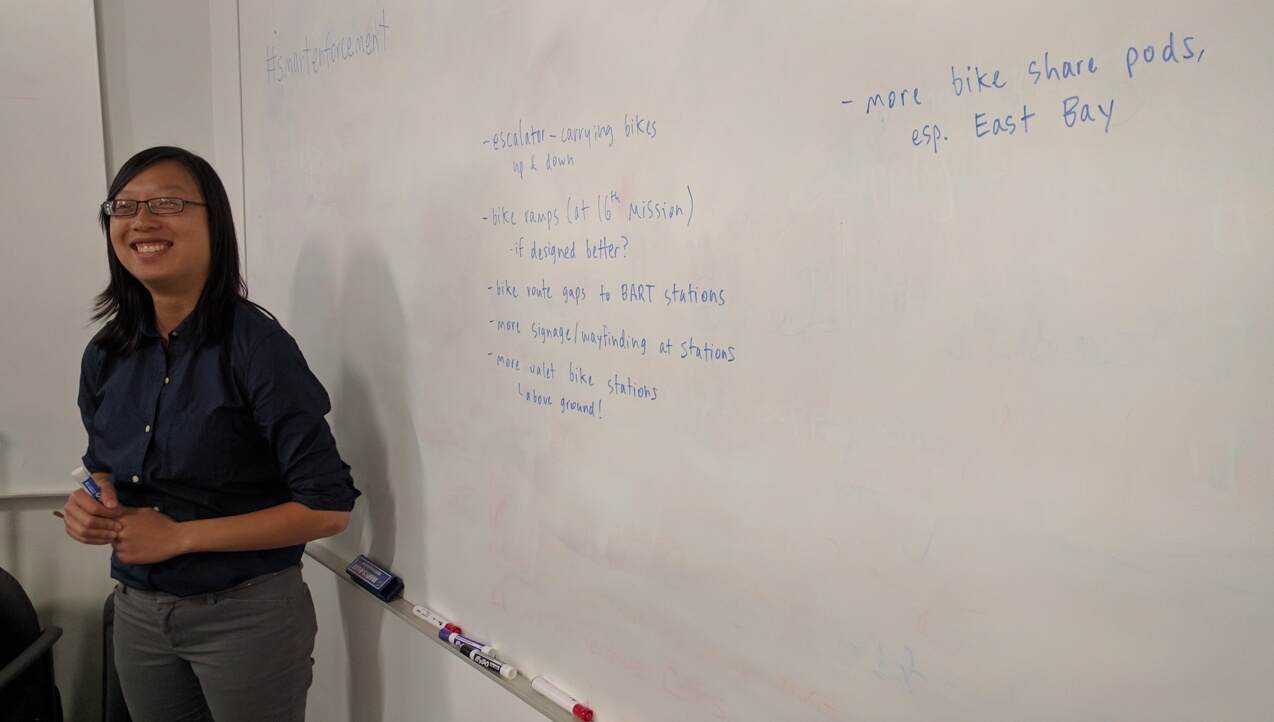 #smartenforcement
- escalator - carrying bikes
up & down
- bike ramps (at 16th Mission)
- if designed better?
- bike route gaps to BART stations
- more signage/wayfinding at stations
- more valet bike stations
above ground!
- more bike share pods,
esp. East Bay
EXPO